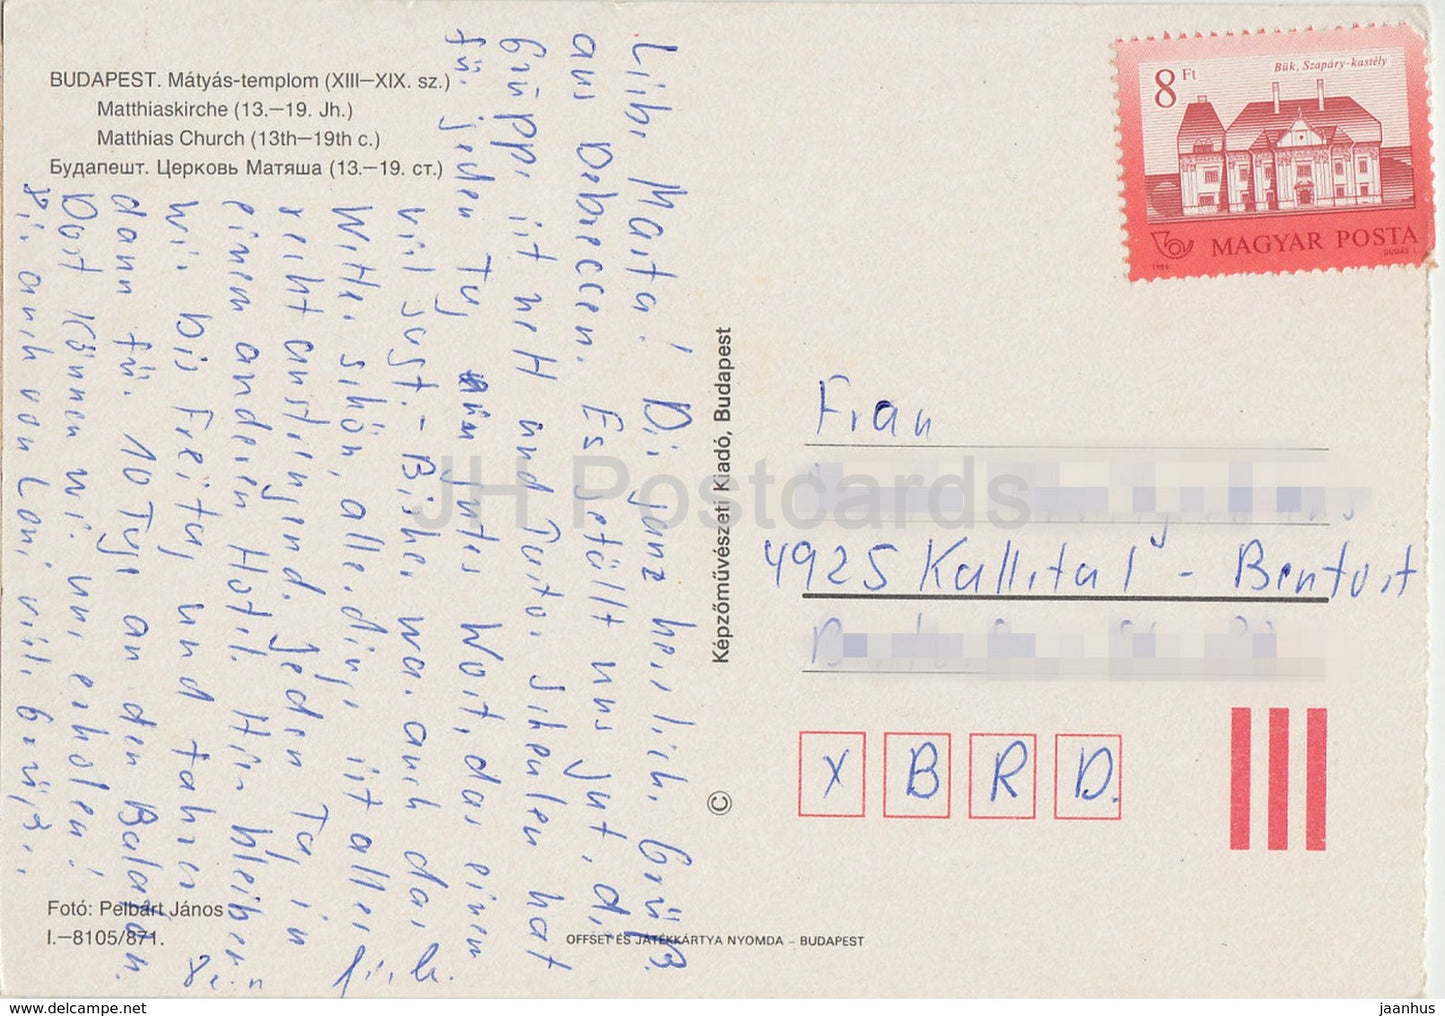 BUDAPEST. Mátyás-templom (XIII—XIX. sz.)
Matthiaskirche (13.—19. Jh.)
Matthias Church (13th—19th c.)
Будапешт. Церковь Матяша (13.—19. ст.)
Liebe Marta! Die ganz herzlich. Grüße
aus Debrecen. Es gefällt uns gut, die
Gruppe ist nett und Tutor Schulen hat
für jeden Tag ein gutes Wort, das einem
viel sagt. – Bisher war auch das
Wetter schön, allerdings ist alles
recht anstrengend. Jeden Tag in
einem anderen Hotel. Hier bleiben
wir bis Freitag und fahren
dann für 10 Tage an den Balaton.
Dort können wir uns erholen!
auch von Loni viele Grüße
Fotó: Pelbárt János
I.—8105/871.
Képzőművészeti Kiadó, Budapest
©
OFFSET ÉS JÁTÉKKÁRTYA NYOMDA – BUDAPEST
8 Ft
Bük, Szapáry-kastély
MAGYAR POSTA
1986
DUDÁS L.
Frau
4925 Kalletal - Bentorf
X B R D.
JH Postcards
www.delcampe.net
jaanhus